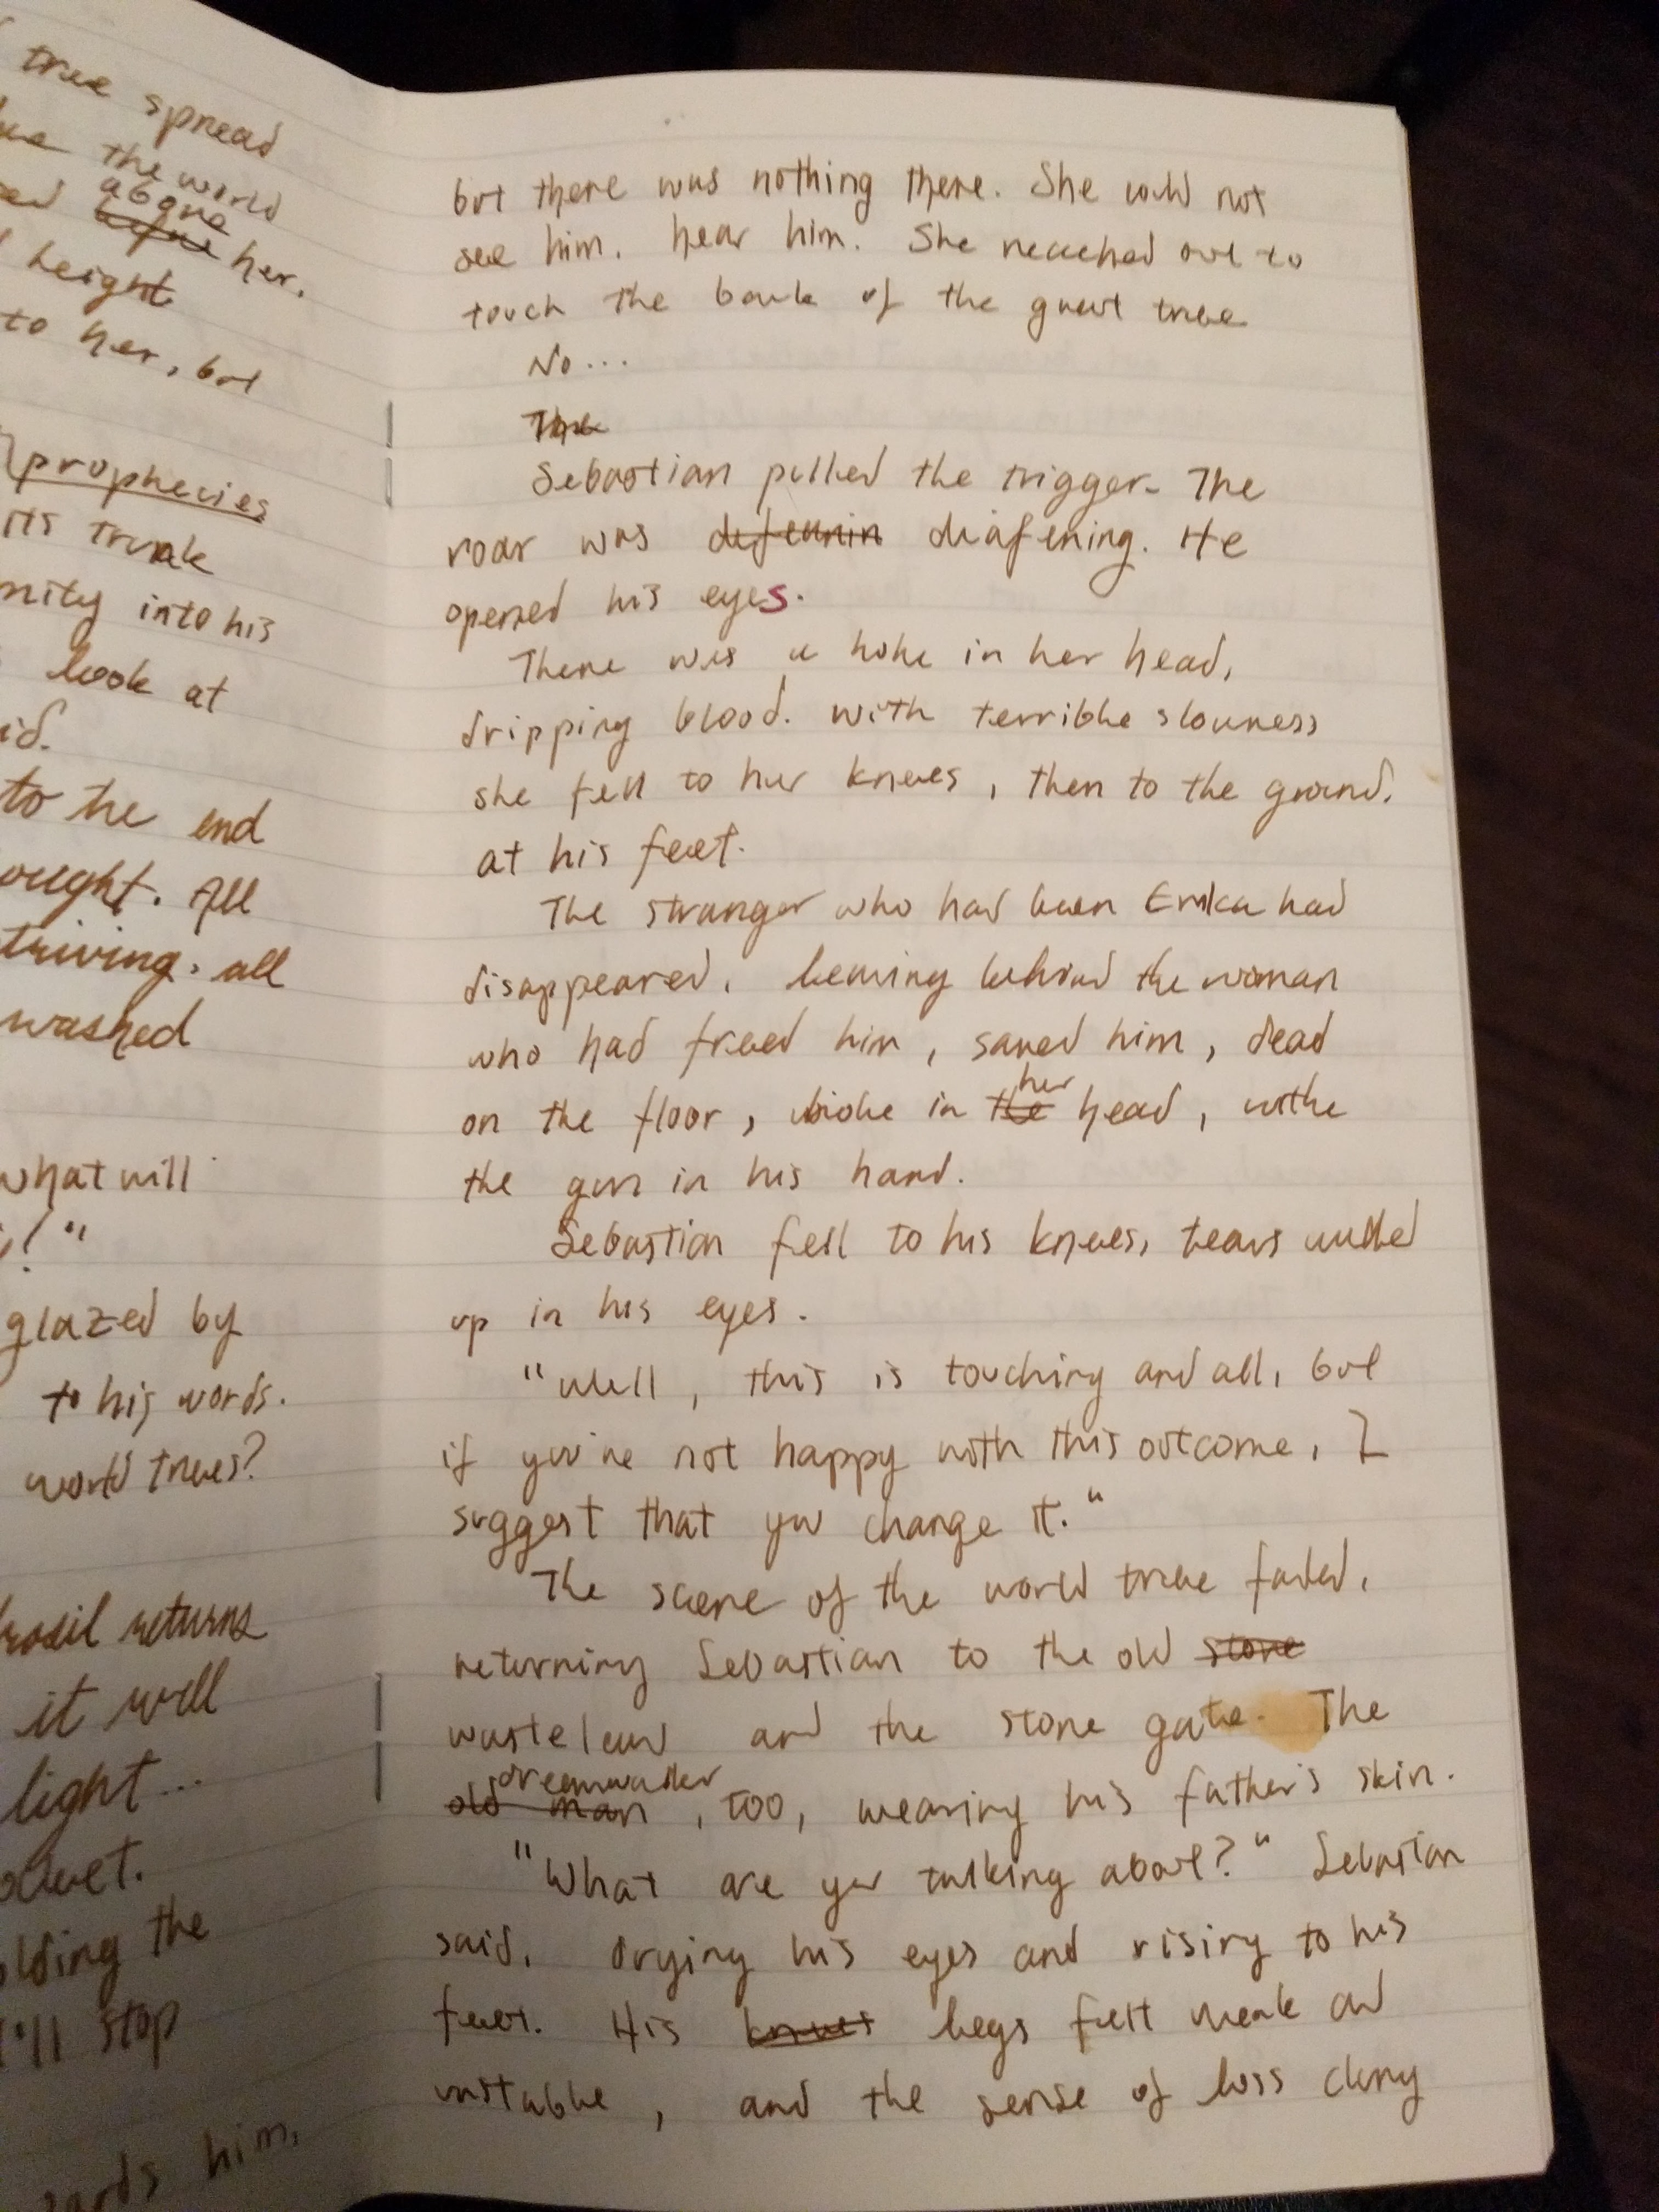 true spread
the world
above
before her.
height
to her, but
prophecies
its trunk
into his
look at
to the end
All
all
washed
what will
glazed by
to his words.
world trees?
returns
it will
light...
the
stop
him.
but there was nothing there. She could not
see him. hear him. She reached out to
touch the bark of the great tree
No...
Sebastian pulled the trigger. The
roar was defeanin deafening. He
opened his eyes.
There was a hole in her head,
dripping blood. with terrible slowness
she fell to her knees, then to the ground.
at his feet.
The stranger who had been Erika had
disappeared, leaving behind the woman
who had freed him, saved him, dead
her
on the floor, in the head, withe
the gun in his hand.
Sebastian fell to his knees, tears welled
up in his eyes.
"Well, this is touching and all, but
if you're not happy with this outcome, I
suggest that you change it."
The scene of the world tree faded,
returning Sebastian to the old stone
wasteland and the stone gate. The
dreamwalker
old man, too, wearing his father's skin.
"What are you talking about?" Sebastian
said, drying his eyes and rising to his
feet. His knees legs felt weak and
unstable, and the sense of loss clung